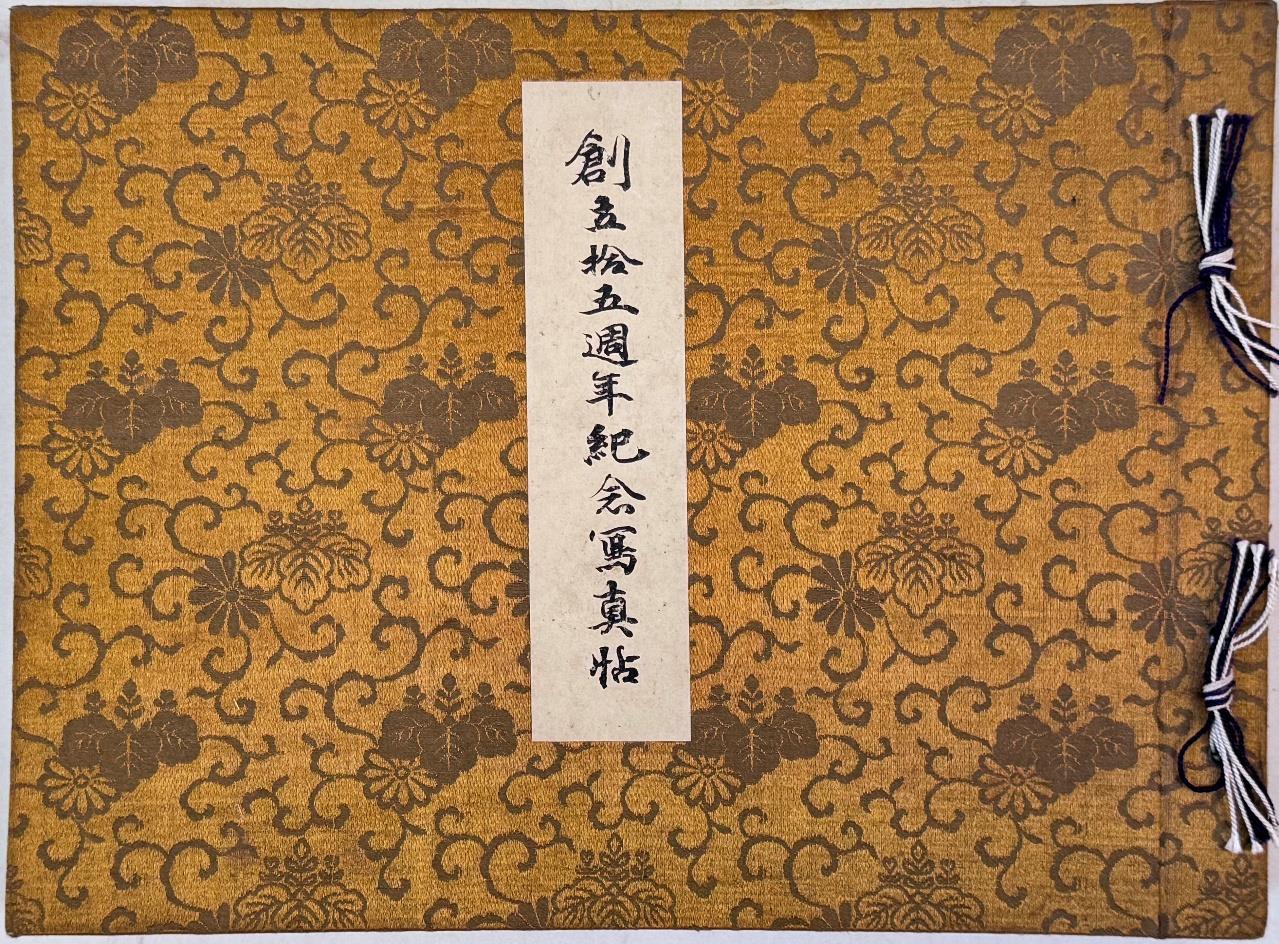 創立拾五週年紀念寫真帖